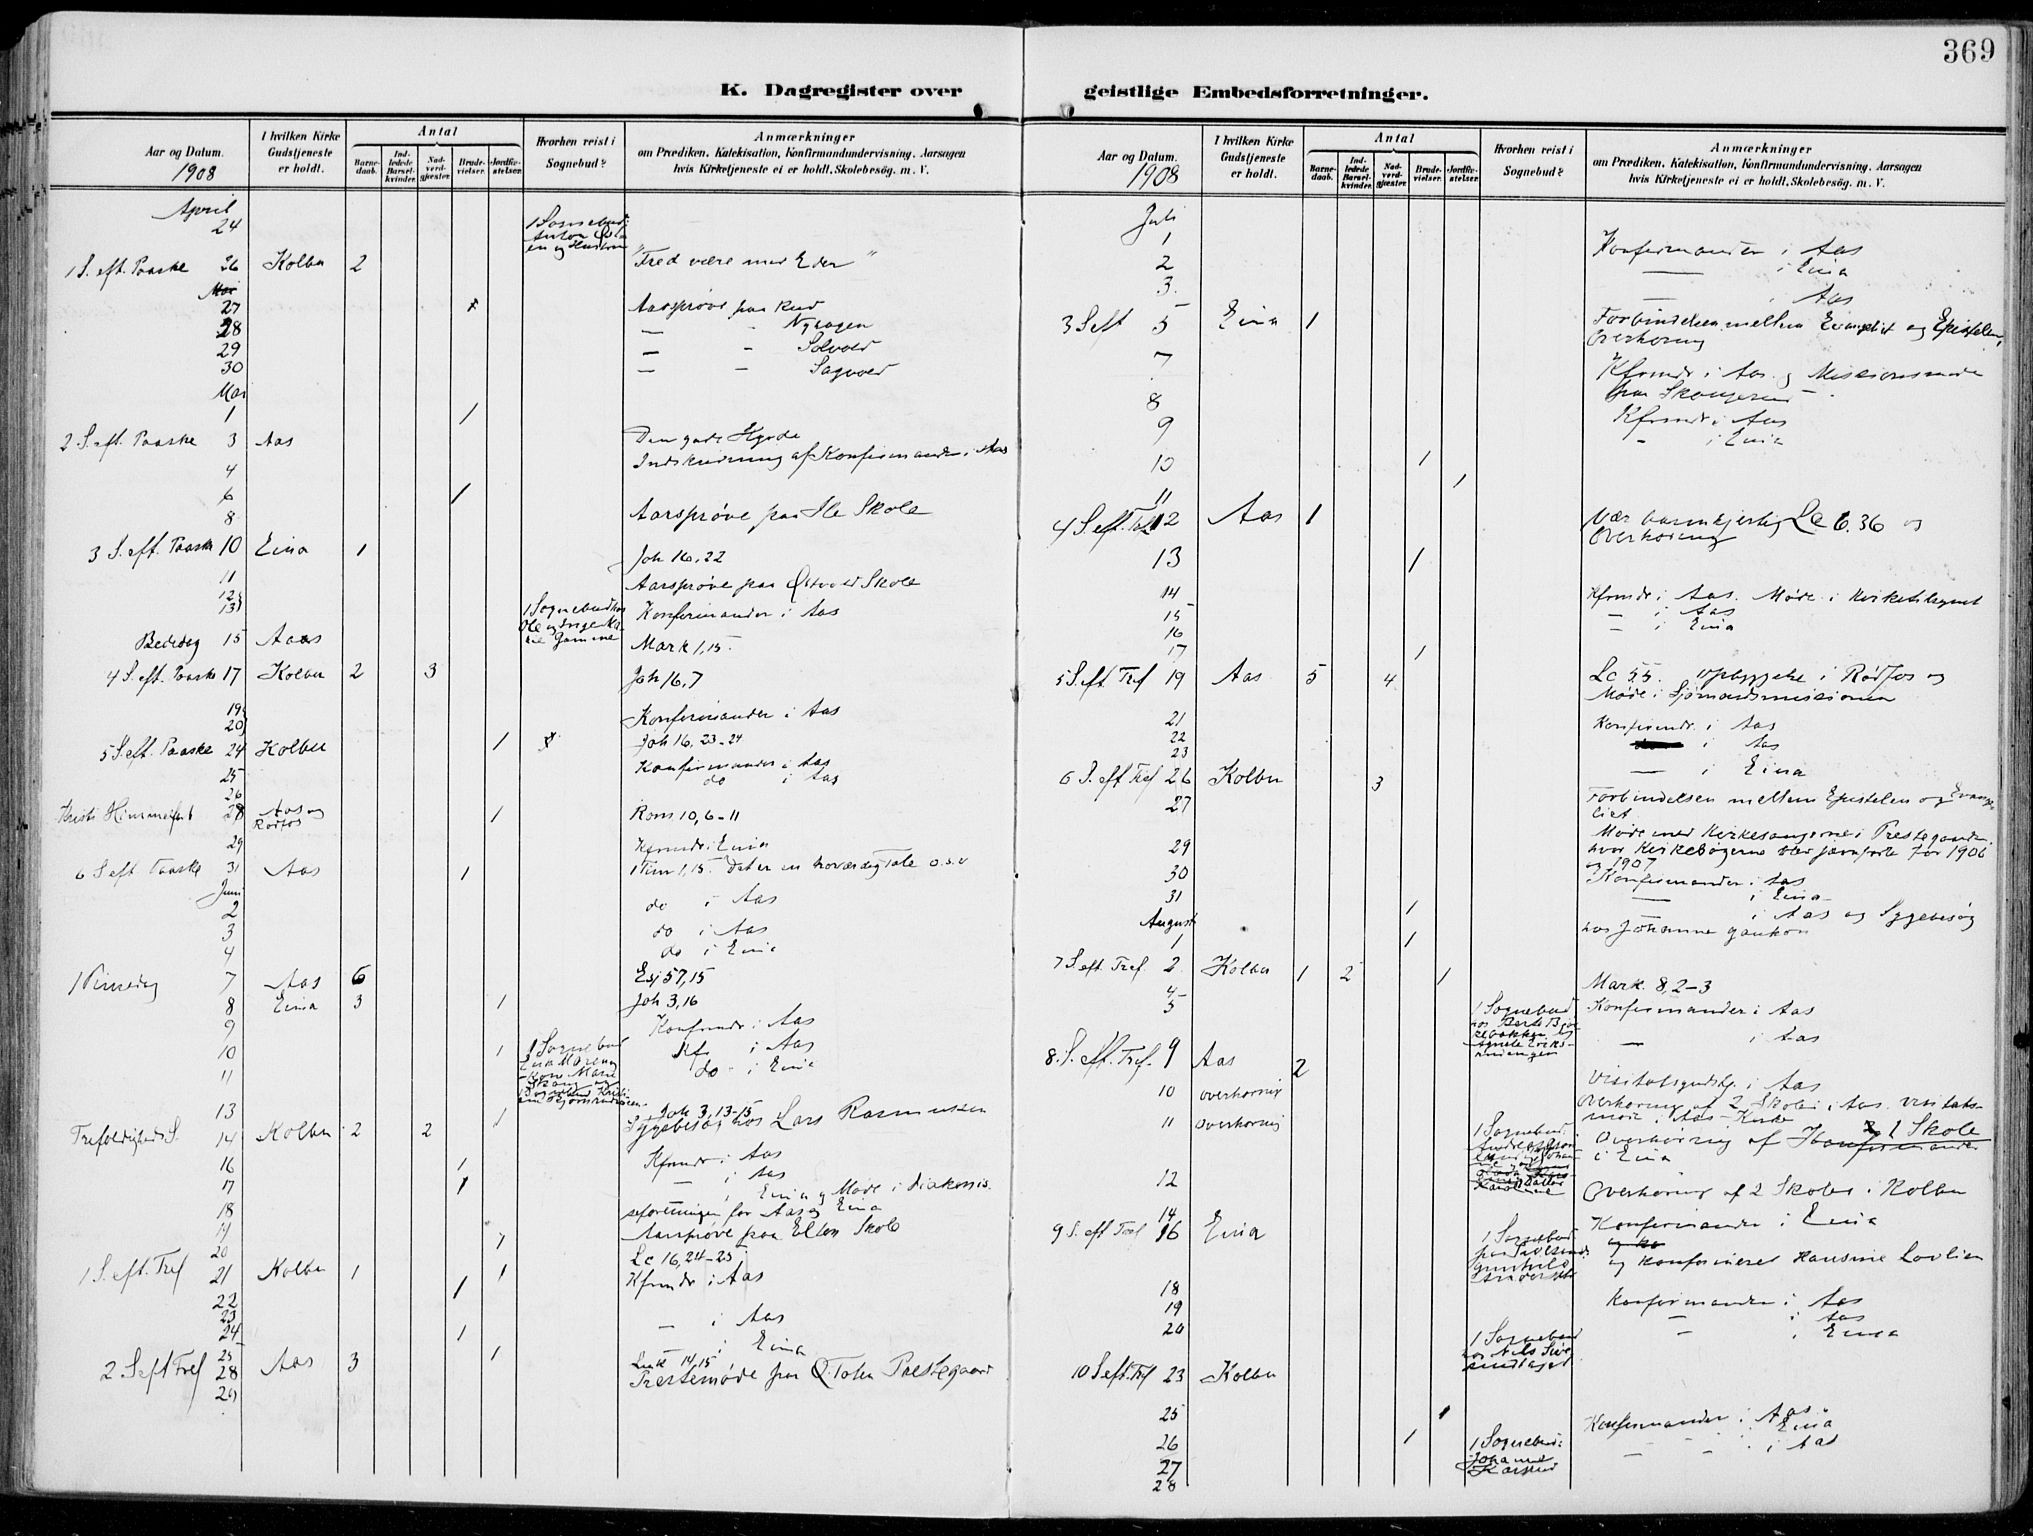 369
K. Dagregister over
geistlige Embedsforretninger.
Aar og Datum.
1908
I hvilken Kirke
Gudstjeneste
er holdt.
Antal
Barne-
daab.
Ind-
ledede
Barsel-
kvinder.
Nad-
verd-
gjæster.
Brude-
vielser.
Jordfæ-
stelser.
Hvorhen reist i
Sognebud?
Anmærkninger
om Prædiken, Katekisation, Konfirmandundervisning, Aarsagen
hvis Kirketjeneste ei er holdt, Skolebesøg. m. V.
April
24 1 Sognebud:
Anton
en og Hustru
1 S. eft. Paaske 26 Kolbu 2 "Fred være med Eder"
Mai
27 Aarsprøve paa Rud
28 — " Nyhagen
29 — - Solvold
30 — - Sagvold
Mai
1 1
2 S. eft. Paaske 3 Aas Den gode Hyrde
4 Indskrivning af Konfirmander i Aas
6 1
8 Aarsprøve paa Ile Skole
3 S. eft. Paaske 10 Eina 1 Joh 16,22
11 Aarsprøve paa Østvold Skole
12
13 1 Sognebud hos
Ole og Inge Ma-
rie Gamme Konfirmander i Aas
Bededag 15 Aas Mark 1,15.
4 S. eft. Paaske 17 Kolbu 2 3 Joh 16,7
19
20 Konfirmander i Aas
5 S. eft. Paaske 24 Kolbu 1 Joh 16,23-24
25 Konfirmander i Aas
26 do i Aas
Kristi Himmelfart 28 Aas og
Rødfos 1 Rom 10,6-11
29 Kfrmdr i Eina
6 S eft Paaske 31 Aas 1 1 Tim 1,15. Det er en troværdig Tale o.s.v
Juni
2 do i Aas
3 do i Aas
4 do i Eina
1 Pinsedag 7 Aas 6 Esj 57,15
8 Eina 3 1 Joh 3,16
9 Konfrmdr i Aas
10 1 1 Sognebud Kfr i Aas
11 do i Eina
13 1 Joh 3,13-15
Sygebesøg hos Lars Rasmussen
Trefoldigheds S. 14 Kolbu 2 2
16 1 Kfrmdr i Aas
17 1 — i Aas
18 — Eina og Møde i Diakonis-
seforeningen for Aas og Eina
19 Aarsprøve paa Elton Skole
20 1
1 S. eft. Tref 21 Kolbu 1 1 Lc 16,24-25
22 1 Kfrmdr i Aas
23 — i Aas
24 1 — i Eina
25 1
2 S eft Tref 28 Aas 3 Luk 14,15
29 Prestemøde paa Ø. Toten Prestegaard
Aar og Datum.
1908
I hvilken Kirke
Gudstjeneste
er holdt.
Antal
Barne-
daab.
Ind-
ledede
Barsel-
kvinder.
Nad-
verd-
gjæster.
Brude-
vielser.
Jordfæ-
stelser.
Hvorhen reist i
Sognebud?
Anmærkninger
om Prædiken, Katekisation, Konfirmandundervisning, Aarsagen
hvis Kirketjeneste ei er holdt, Skolebesøg. m. V.
Juli
1 Konfirmander i Aas
2 — i Eina
3. — i Aas
3 S eft 5 Eina 1 Forbindelsen mellem Evangeliet og Epistelen,
Overhøring
7 Kfrmdr i Aas og Missionsmøde
paa
8 Kfrmdr i Aas
9 - i Eina
10 1
11 1
4 S. eft. Tref 12 Aas 1 Vær barmhjertig Lc 6.36 og
Overhøring
13 1
14 Kfrmdr i Aas. Møde i Kirketilsynet
15 — i Aas
16 — i Eina
17 1
5 S. eft. Tref 19 Aas 5 4 Lc 5,5. opbyggelse i Rødfos og
Møde i Sjømandsmissionen
21 Konfirmdr. i Aas
22 i Aas
23 — i Eina
6 S. eft Tref 26 Kolbu 3 Forbindelsen mellem Epistelen og Evange-
liet
27 Møde med Kirkesangerne i Prestegaarden,
hvor Kirkebøgerne blev jævnførte for 1906
og 1907
29 Konfirmander i Aas
30 — i Eina
31 1 — i Aas og Sygebesøg
hos Johanne
August
1 1
7 S. eft. Tref. 2 Kolbu 1 2 1 Mark. 8,2-3
4 1 Sognebud Konfirmander i Aas
5 — i Aas
8. S. eft. Tref. 9 Aas 2 Visitatsgudstj. i Aas
10 overhøring Overhøring af 2 Skoler i Aas. Visitats-
møde i Aas Kirke
11 Overhøring 1 Sognebud Overhøring af Konfirmander 1 Skole
i Eina
12 Overhøring af 2 Skoler i Kolbu
14 Konfirmander i Eina
9 S. eft Tref 16 Eina 1 Sognebud
Gunhild og konfirmeret Hansine Løvlien
18 Konfirmander i Aas
19 — i Aas
20 1 Sognebud
hos Nils — i Eina
10 S eft. Tref 23 Kolbu
25 1 Konfirmander i Aas
26 1 1 Sognebud: — Eina
27 Johanne — - i Aas
28